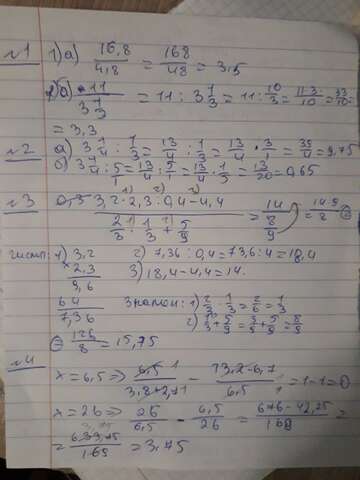 №1 1) а) 16,8/4,8 = 168/48 = 3,5
б) 11/(3 1/3) = 11 : 3 1/3 = 11 : 10/3 = 11·3/10 = 33/10 =
= 3,3
№2 а) 3 1/4 : 1/3 = 13/4 : 1/3 = 13/4 · 3/1 = 39/4 = 9,75
б) 3 1/4 : 5/1 = 13/4 : 5/1 = 13/4 · 1/5 = 13/20 = 0,65
№3 3,2·2,3:0,4-4,4 / 2/3 · 1/3 + 5/9 = 14 / 8/9 = 14·9/8 =
числ: 1) 3,2 2) 7,36 : 0,4 = 73,6 : 4 = 18,4
× 2,3 3) 18,4 - 4,4 = 14.
9,6
64 Знамен: 1) 2/3 · 1/3 = 2/6 = 1/3
7,36 2) 1/3 + 5/9 = 3/9 + 5/9 = 8/9
= 126/8 = 15,75
№4
x = 6,5 ⇒ 6,5 - 13,2-6,7 / 6,5 = 1-1=0
x = 26 ⇒ 26/6,5 - 6,5/26 = 676-42,25 =
= 3,75